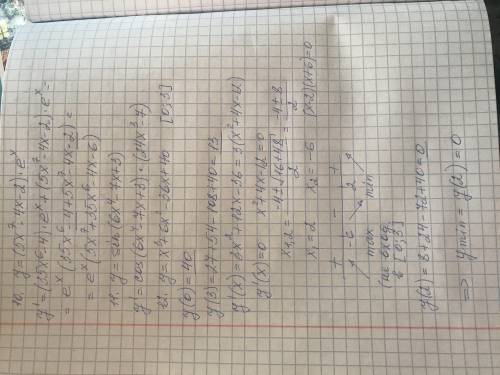 10. y = (5x⁷-4x-2)·eˣ
y' = (35x⁶-4)·eˣ+(5x⁷-4x-2)·eˣ=
= eˣ(35x⁶-4+5x⁷-4x-2)=
= eˣ(5x⁷+35x⁶-4x-6)
11. y = sin(6x⁴-7x+3)
y' = cos(6x⁴-7x+3)·(24x³-7)
12. y = x³+6x²-36x+40 [0; 3]
y(0) = 40
y(3) = 27+54-108+40=13
y'(x) = 3x²+12x-36=3(x²+4x-12)
y'(x)=0 x²+4x-12=0
x₁,₂ = (-4±√16+48)/2 = (-4±8)/2
x₁=2 x₂=-6 (x-2)(x+6)=0
+ -6 - 2 +
max min
(не вход.
в [0; 3]
y(2) = 8+24-72+40=0
=> ymin = y(2) = 0